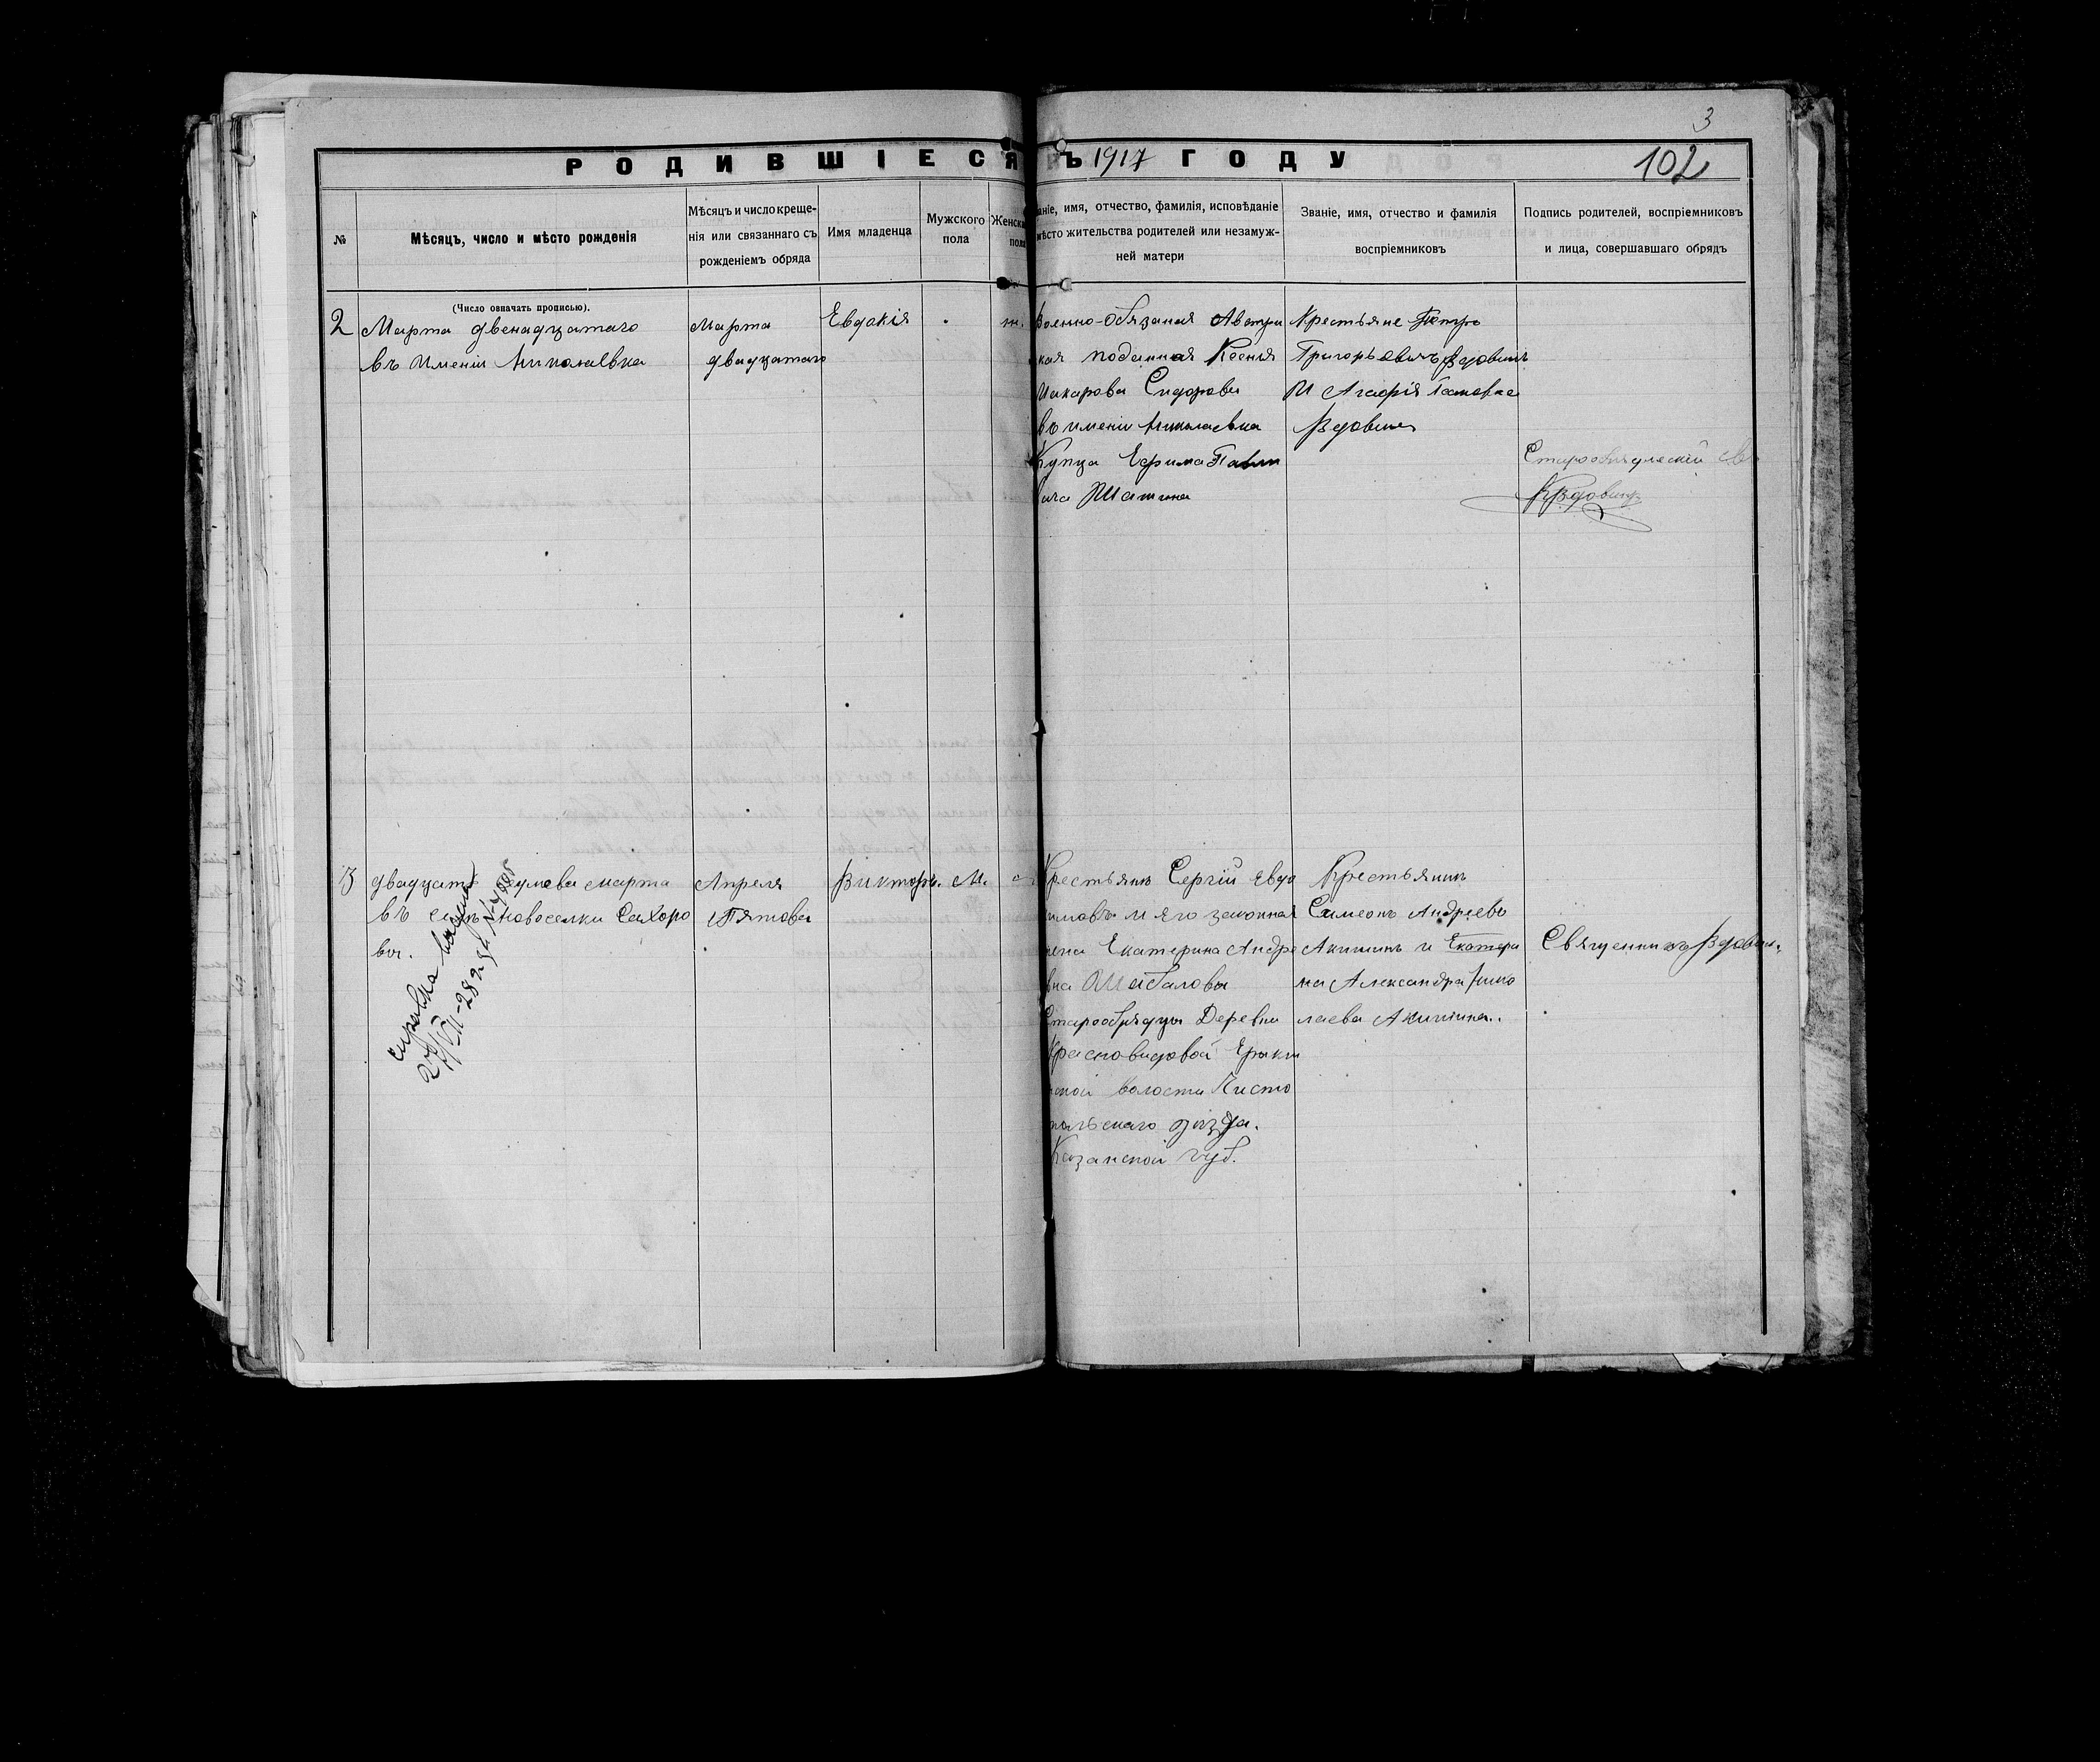 3
РОДИВШІЕСЯ
Ъ 1917 ГОДУ
102
№
Мѣсяцъ, число и мѣсто рожденія
Мѣсяцъ и число креще-
нія или связаннаго съ
рожденіемъ обряда
Имя младенца
Мужского
пола
Женск
пола
аніе, имя, отчество, фамилія, исповѣданіе
мѣсто жительства родителей или незамуж-
ней матери
Званіе, имя, отчество и фамилія
воспріемниковъ
Подпись родителей, воспріемниковъ
и лица, совершавшаго обрядъ
(Число означать прописью).
2
Марта двенадцатаго
въ Имении Николаевка
Марта
двадцатаго
Евдокія
ж.
Военно-обязаная Австри
кая поданная Ксенья
Макарова Сидорова
въ имении Николаевка
Купца Ефима Павло
вича Шашина
Крестьяне Петръ
Григорьевичъ Вдовинъ
И Агафія
Вдовина
Старообрядческій
Вдовинъ
3
двадцать седмова марта
въ селъ Новоселки Сахоро
во.
справка выдана
Апреля
Пятова
Викторъ.
М.
Крестьянъ Сергій Евдо
имовъ и его законная
жена Екатерина Андре
вна Шабалова
Старообрядцы Деревни
Красновидовой
ской волости Чисто
польскаго уѣзда.
Казанской губ.
Крестьянинъ
Симеонъ Андреевъ
Акишинъ и Екатери
на Александра Нико
лаева Акишина.
Священникъ Вдовинъ